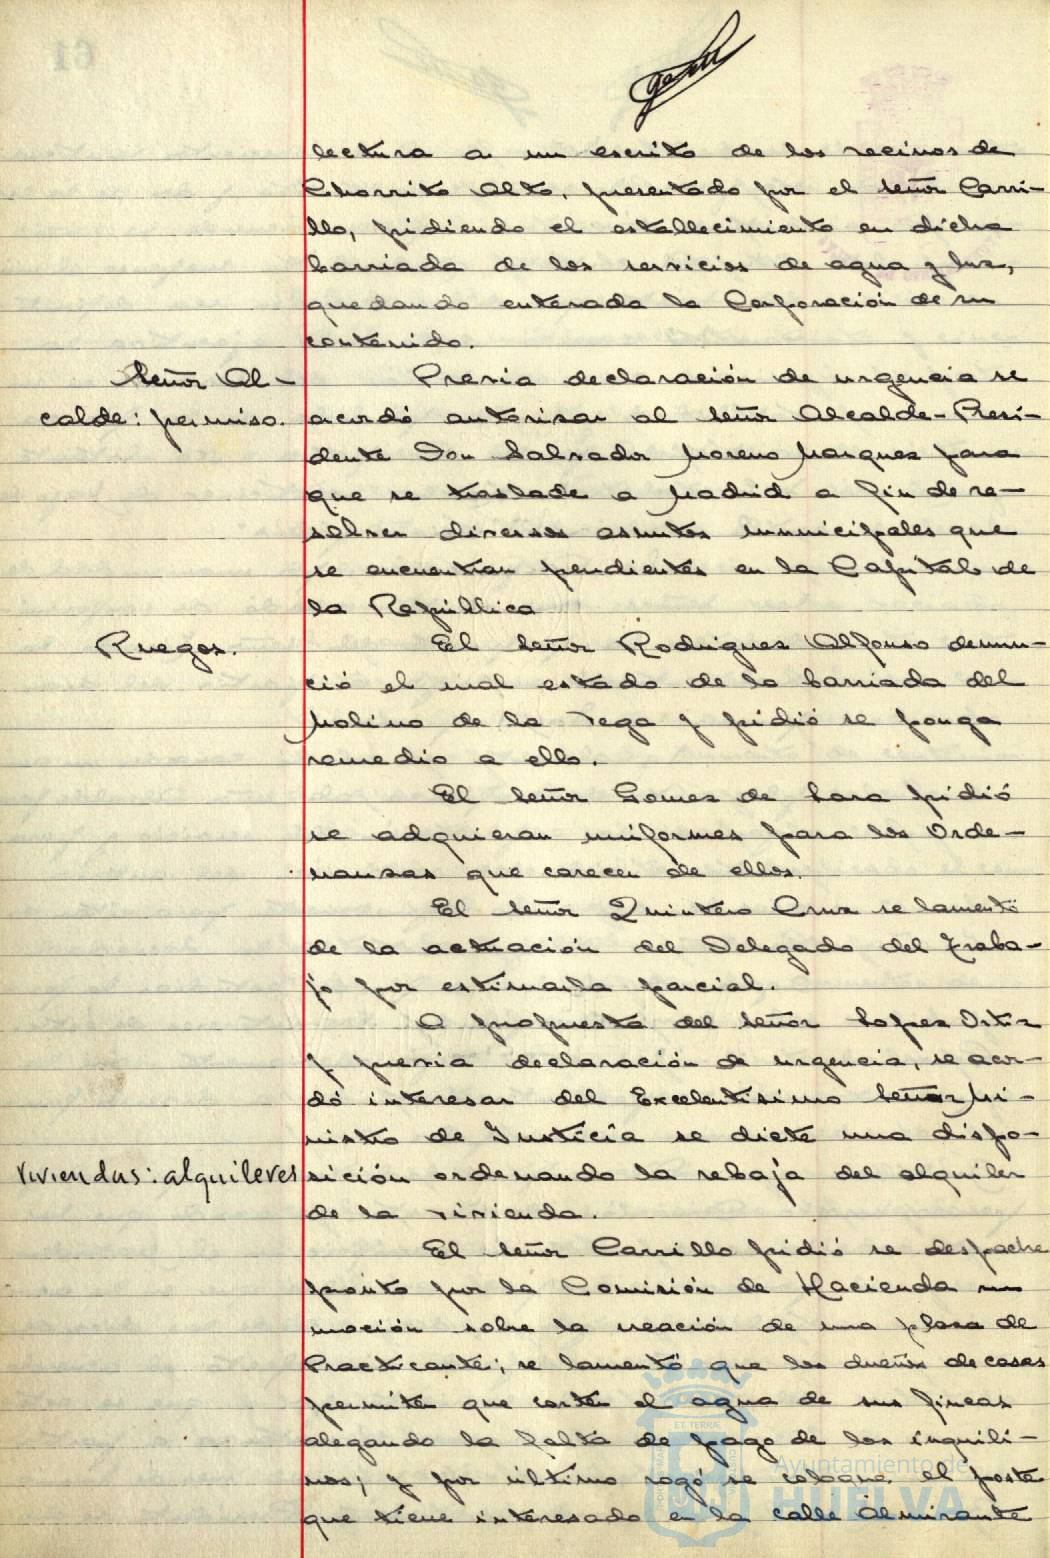 lectura a un escrito de los vecinos de
Chorrito Alto, presentado por el señor Carri-
llo, pidiendo el establecimiento en dicha
barriada de los servicios de agua y luz,
quedando enterada la Corporación de su
contenido.
Señor Al-
calde: permiso.
Previa declaración de urgencia se
acordó autorisar al señor Alcalde-Presi-
dente Don Salvador Moreno Marques para
que se traslade a Madrid a fin de re-
solver diversos asuntos municipales que
se encuentran pendientes en la Capital de
la República
Ruegos.
El señor Rodrigues Alfonso denun-
ció el mal estado de la barriada del
Molino de la Vega y pidió se ponga
remedio a ello.
El señor Gomes de Lara pidió
se adquieran uniformes para los Orde-
nansas que carecen de ellos.
El señor Quintero Crus se lamentó
de la actuación del Delegado del Traba-
jo por estimarla parcial.
A propuesta del señor Lopes Ortis
y previa declaración de urgencia, se acor-
dó interesar del Excelentísimo Señor Mi-
nistro de Justicia se dicte una dispo-
Viviendas: alquileres
sición ordenando la rebaja del alquiler
de la vivienda.
El señor Carrillo pidió se despache
pronto por la Comisión de Hacienda su
moción sobre la creación de una plasa de
Practicante; se lamentó que los dueños de casas
permitan que corten el agua de sus fincas
alegando la falta de pago de los inquili-
nos; y por último rogó se coloque el poste
que tiene interesado en la calle Almirante
61
Ayuntamiento de
HUELVA